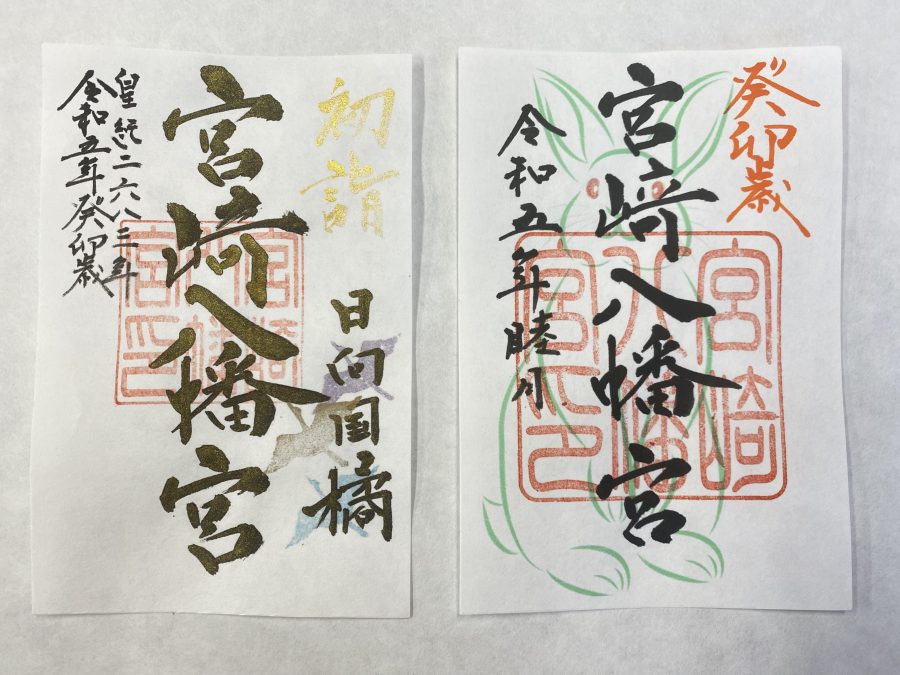 初詣
日向国橘
宮崎八幡宮
皇紀二六八三年
令和五年癸卯歳
宮崎八幡宮印
癸卯歳
宮﨑八幡宮
令和五年睦月
宮崎八幡宮印